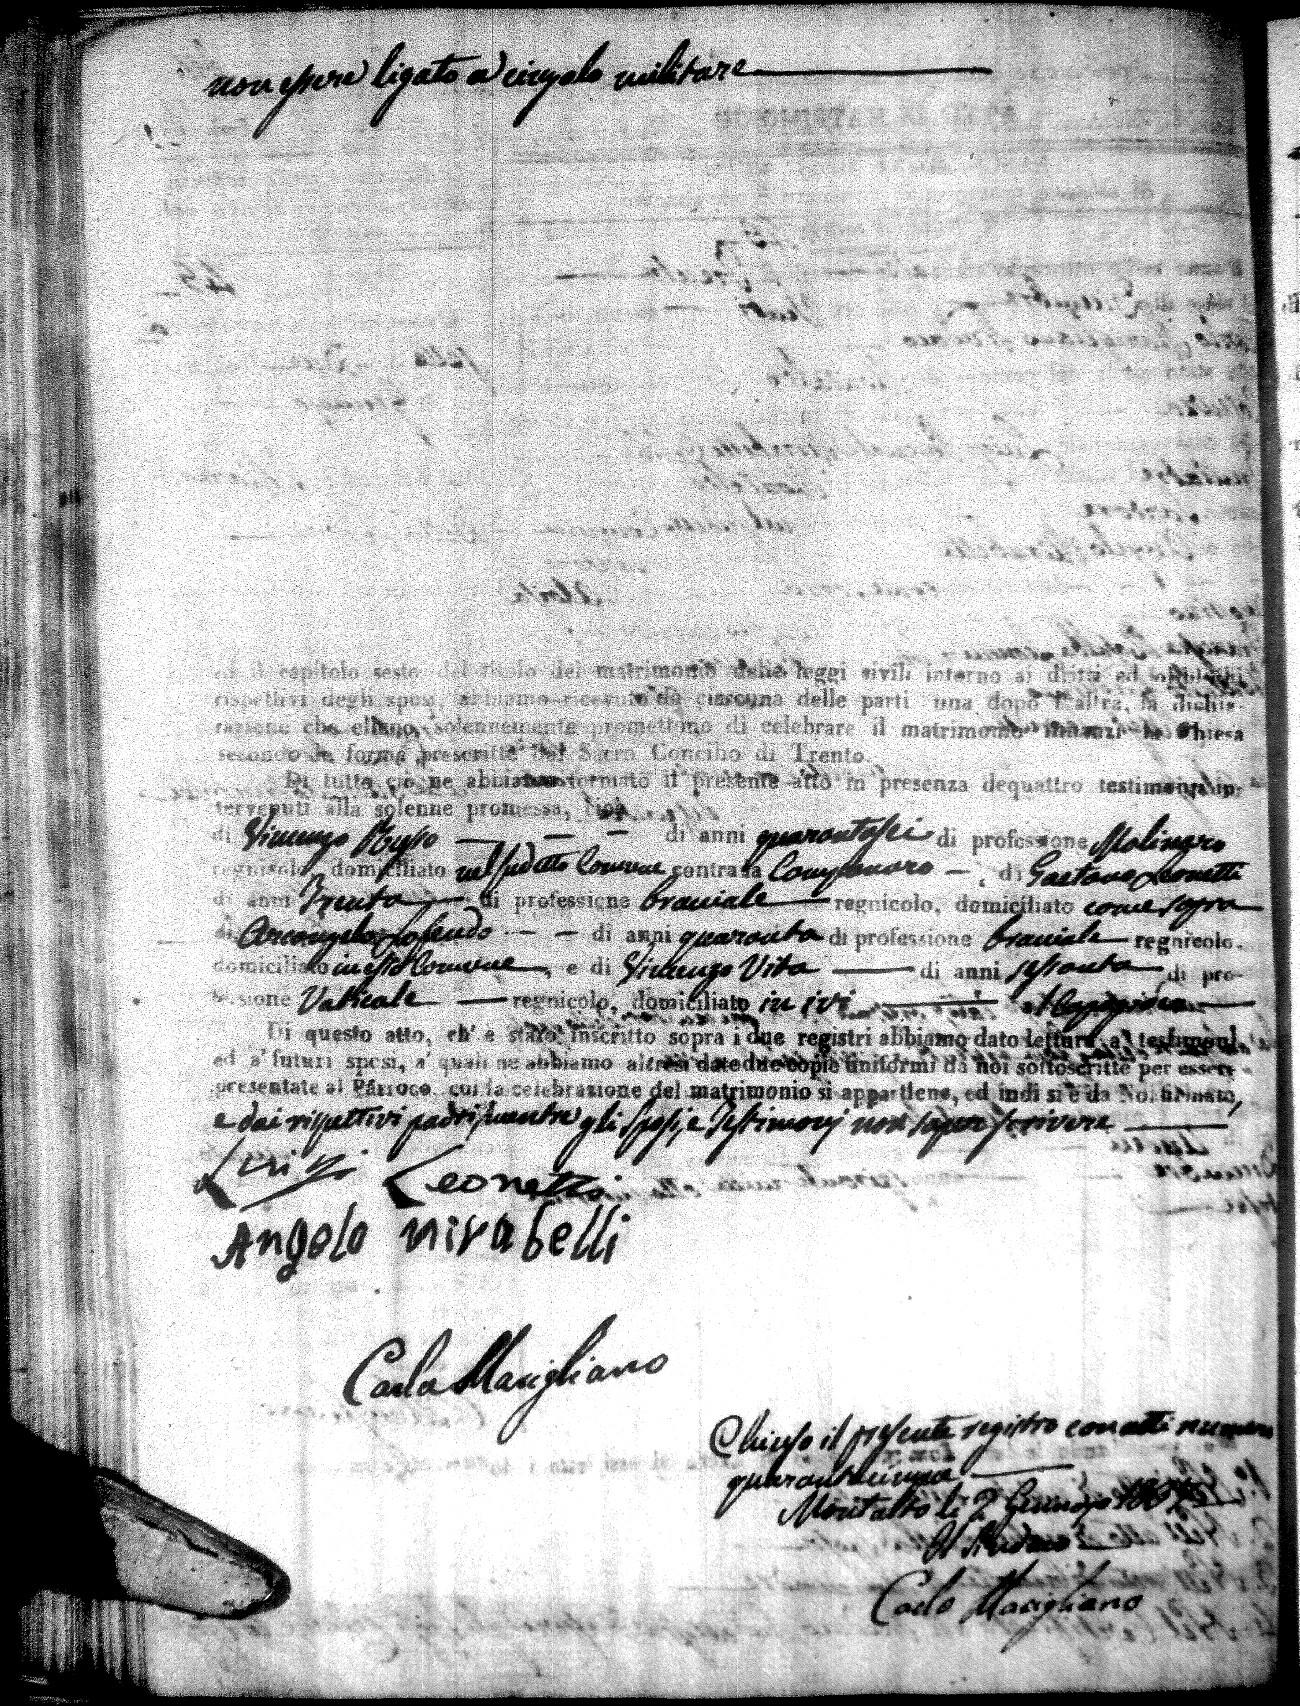 non essere ligato a cingolo militare
ed il capitolo sesto del titolo del matrimonio delle leggi civili intorno ai diritti ed obblighi
rispettivi degli sposi, abbiamo ricevuto da ciascuna delle parti una dopo l'altra, la dichia-
razione che ellano solennemente promettono di celebrare il matrimonio innanzi la Chiesa
secondo le forme prescritte dal Sacro Concilio di Trento.
Di tutto ciò ne abbiamo formato il presente atto in presenza dequattro testimoni in-
tervenuti alla solenne promessa,
di Vincenzo Russo — — — di anni quarantasei di professione Molinaro
regnicolo, domiciliato nel sudetto Comune contrada — , di Gaetano Leonetti
di anni Trenta — di professione bracciale — regnicolo, domiciliato come sopra
di Arcangelo — — di anni quaranta di professione bracciale — regnicolo,
domiciliato in esso Comune —, e di Vincenzo Vita — di anni sessanta — di pro-
fessione Vaticale — regnicolo, domiciliato in ivi —
Di questo atto, ch' è stato inscritto sopra i due registri abbiamo dato lettura a' testimoni,
ed a' futuri sposi, a' quali ne abbiamo altresì date due copie uniformi da noi sottoscritte per essere
presentate al Parroco, cui la celebrazione del matrimonio si appartiene, ed indi si è da Noi firmato,
e dai rispettivi padri, mentre gli Sposi, e Testimonj non saper scrivere —
Leonetti
Angelo mirabelli
Carlo Marigliano
Chiuso il presente registro con atti numero
quarantacinque —
Montalto li 2 Gennajo
Il Sindaco
Carlo Marigliano